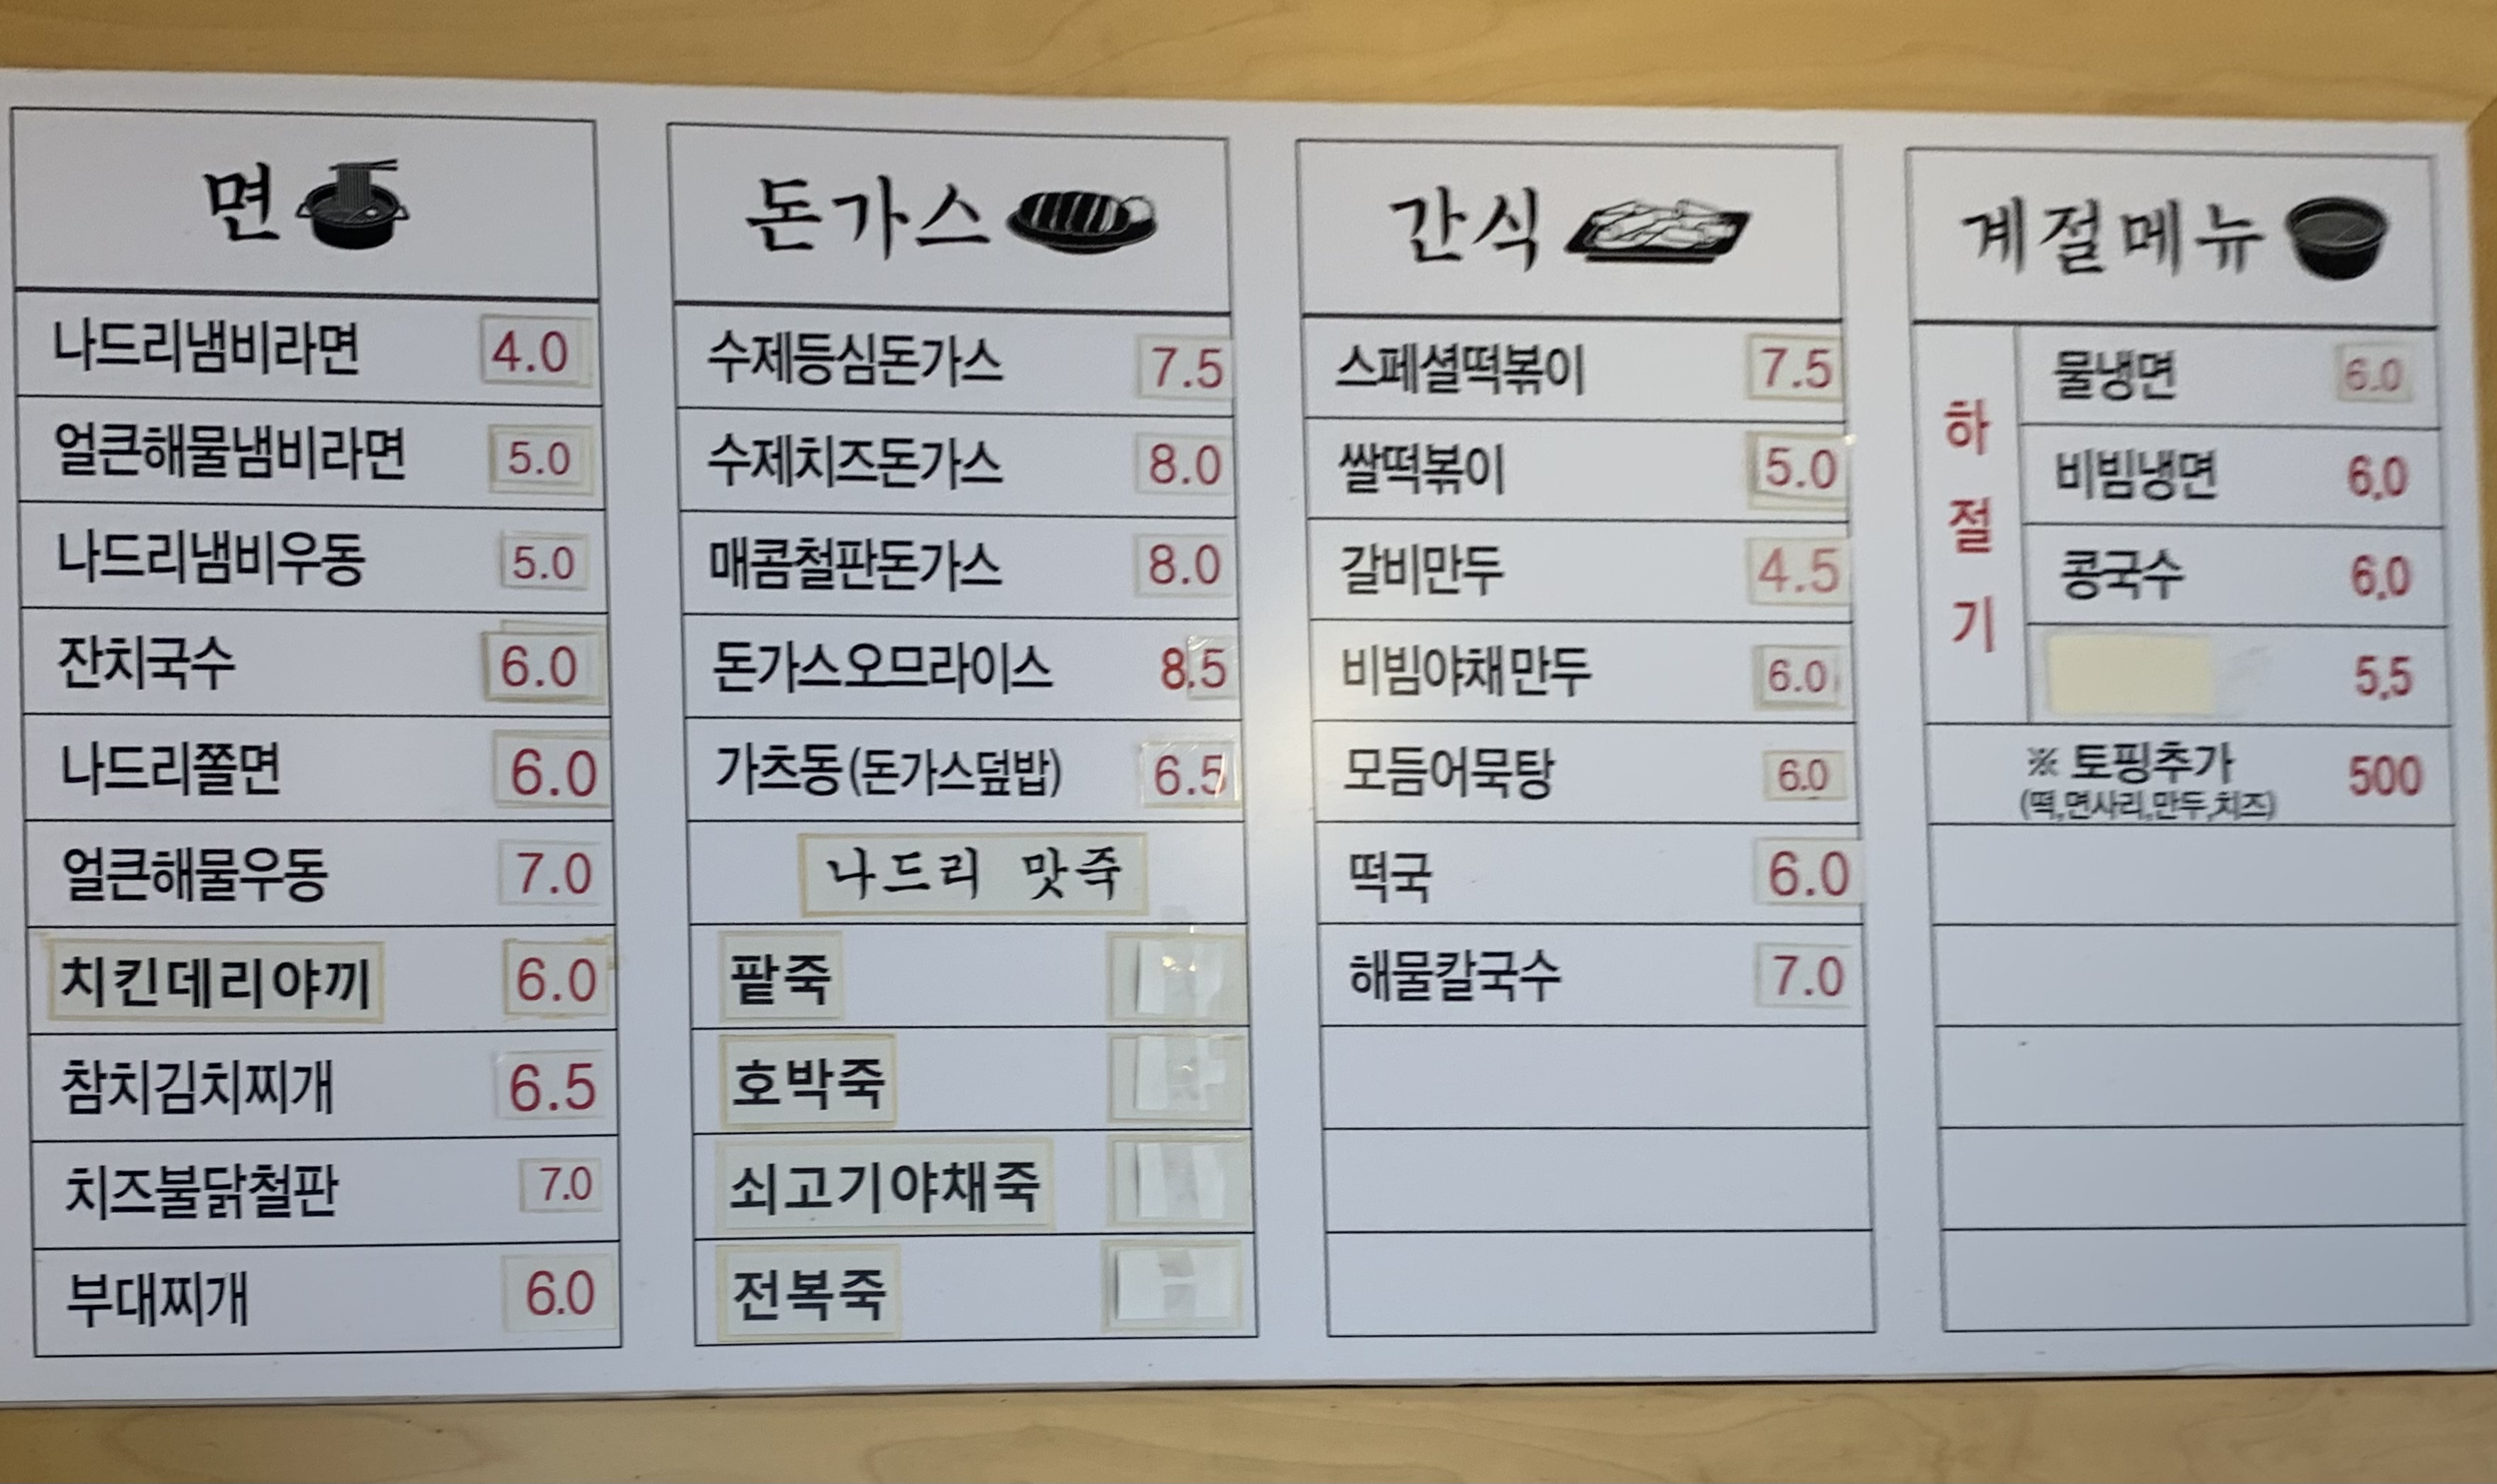 면
나드리냄비라면 4.0
얼큰해물냄비라면 5.0
나드리냄비우동 5.0
잔치국수 6.0
나드리쫄면 6.0
얼큰해물우동 7.0
치킨데리야끼 6.0
참치김치찌개 6.5
치즈불닭철판 7.0
부대찌개 6.0
돈가스
수제등심돈가스 7.5
수제치즈돈가스 8.0
매콤철판돈가스 8.0
돈가스오므라이스 8.5
가츠동(돈가스덮밥) 6.5
나드리 맛죽
팥죽
호박죽
쇠고기야채죽
전복죽
간식
스페셜떡볶이 7.5
쌀떡볶이 5.0
갈비만두 4.5
비빔야채만두 6.0
모듬어묵탕 6.0
떡국 6.0
해물칼국수 7.0
계절메뉴
하절기
물냉면 6.0
비빔냉면 6.0
콩국수 6.0
5.5
※ 토핑추가 500
(떡,면사리,만두,치즈)